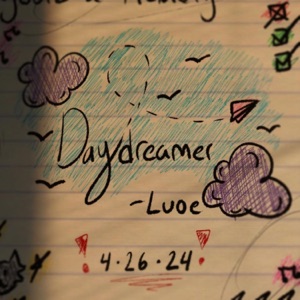 Daydreamer
-Luoe
4.26.24